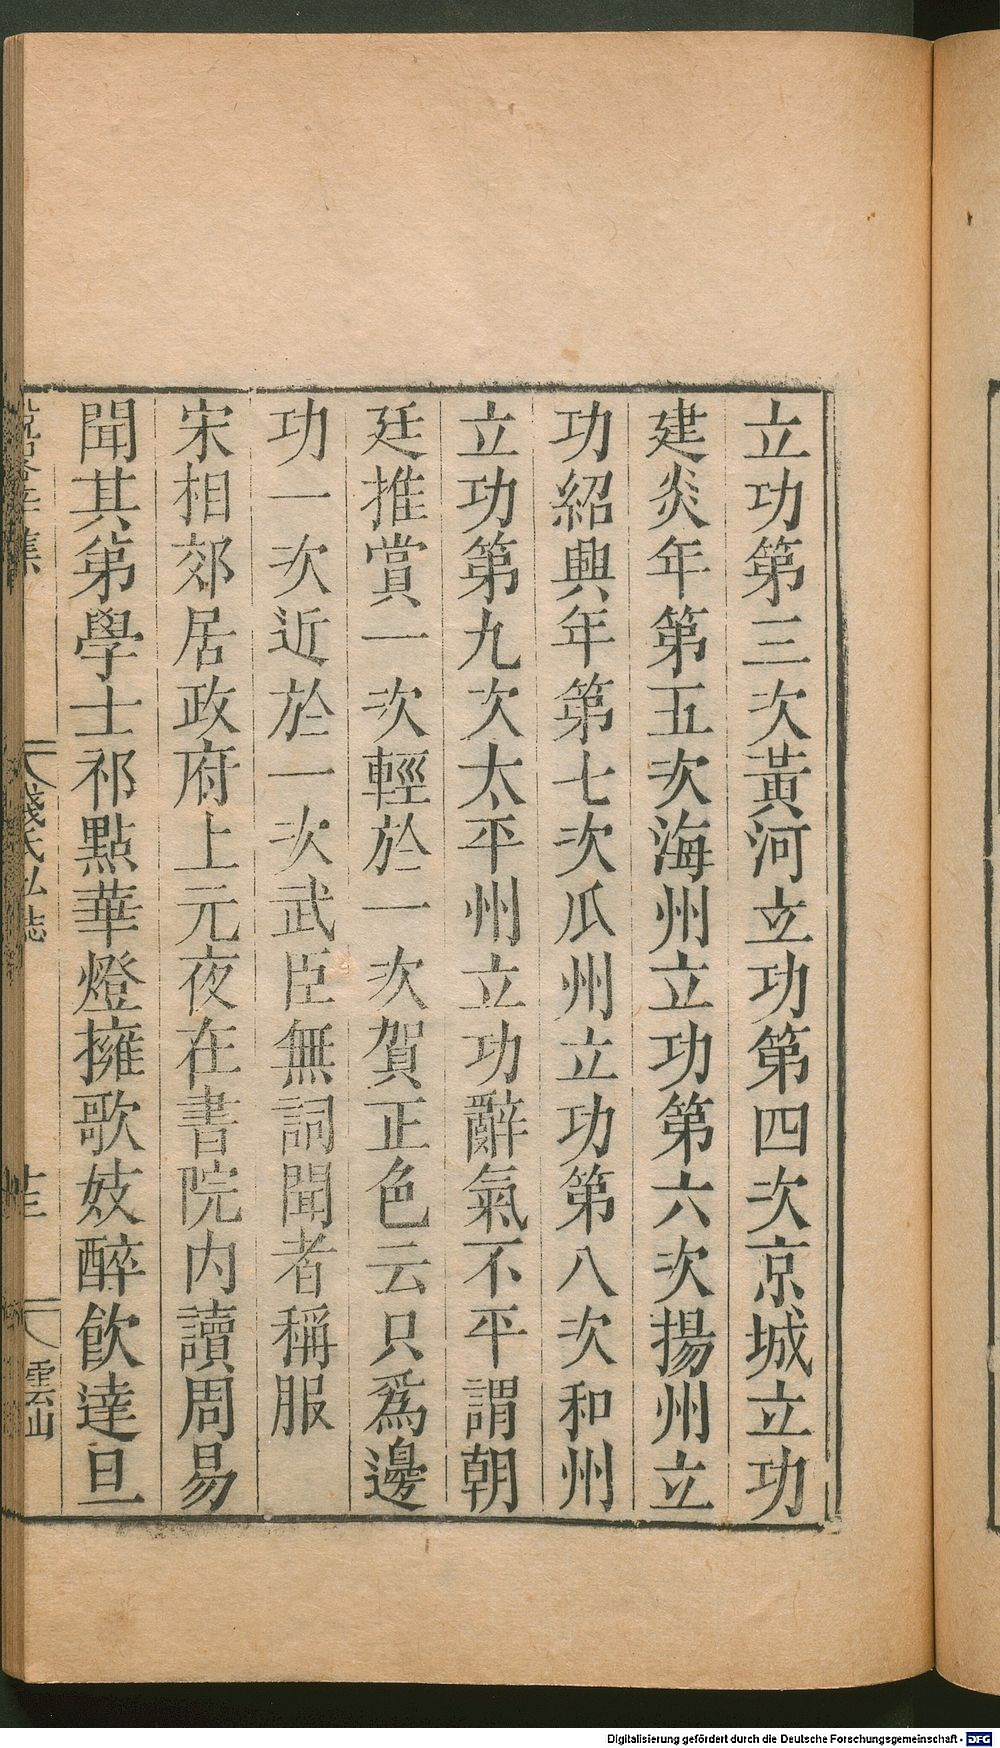 立功第三次黃河立功第四次京城立功
建炎年第五次海州立功第六次揚州立
功紹興年第七次瓜州立功第八次和州
立功第九次太平州立功辭氣不平謂朝
廷推賞一次輕於一次賀正色云只爲邊
功一次近於一次武臣無詞聞者稱服
宋相郊居政府上元夜在書院内讀周易
聞其弟學士祁點華燈擁歌妓醉飲達旦
錢氏私誌
雲山
Digitalisierung gefördert durch die Deutsche Forschungsgemeinschaft - DFG